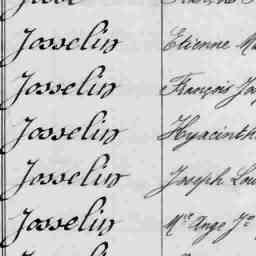 Josselin Etienne
Josselin François
Josselin Hyacinth
Josselin Joseph Lou
Josselin Mie Ange Je
Josselin